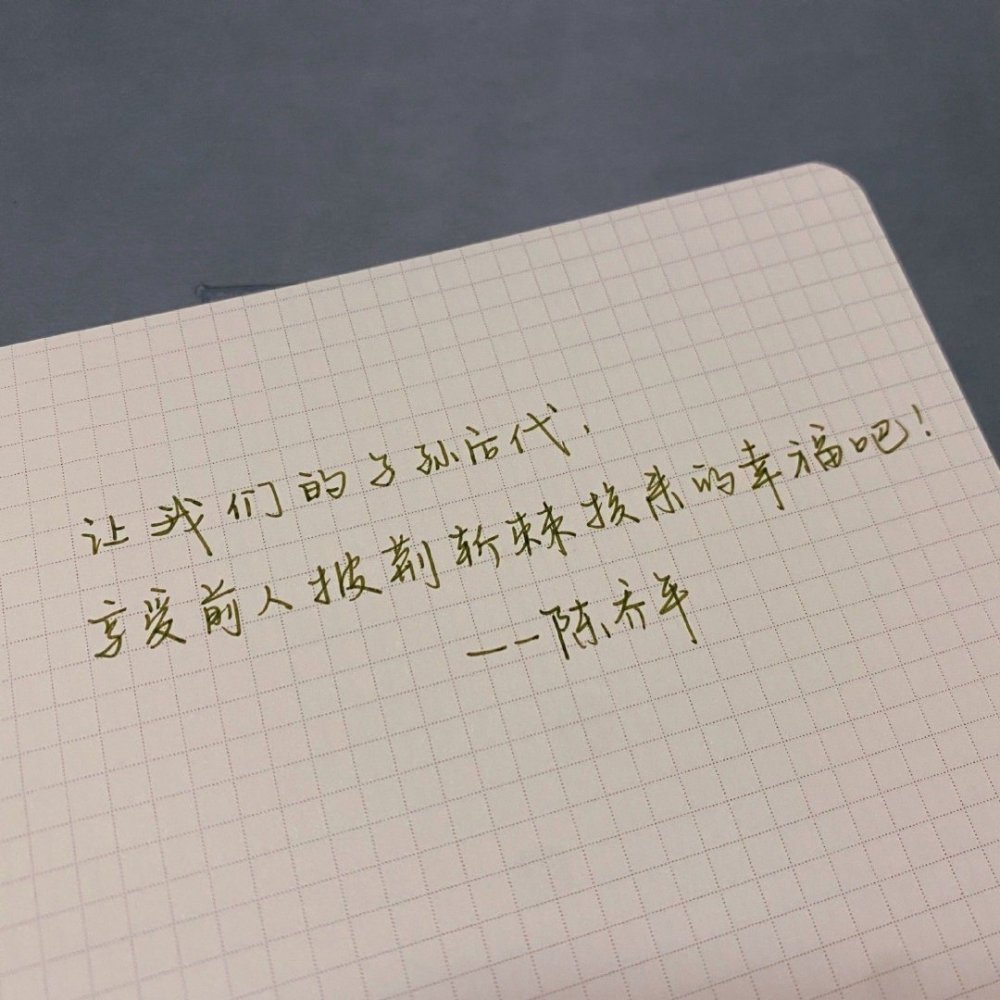 让我们的子孙后代，
享受前人披荆斩棘换来的幸福吧！
——陈乔年